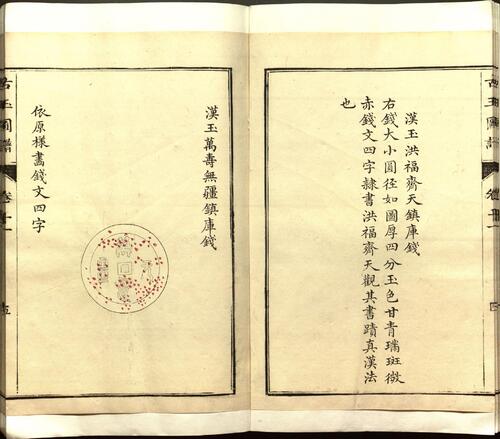 漢玉洪福齊天鎮庫錢
右錢大小圓徑如圖厚四分玉色甘青瑞斑微
赤錢文四字隷書洪福齊天觀其書蹟真漢法
也
古玉圖譜
漢玉萬壽無疆鎮庫錢
依原樣畫錢文四字
古玉圖譜